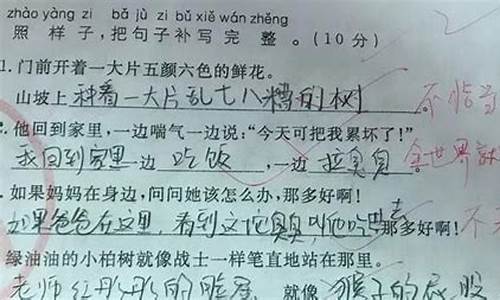 zhào yàng zi bǎ jù zi bǔ xiě wán zhěng
照样子,把句子补写完整。(10分)
1.门前开着一大片五颜六色的鲜花。
山坡上种着一大片乱七八糟的树 不恰当
他回到家里,一边喘气一边说:“今天可把我累坏了!”
我回到家里一边吃饭,一边拉臭臭 全世界
.如果妈妈在身边,问问她该怎么办,那多好啊!
如果爸爸在这里,看到这坨臭臭叫他吃去那多好啊! 不
绿油油的小柏树就像战士一样笔直地站在那里。
老师红彤彤的脸蛋就像猴子的屁股